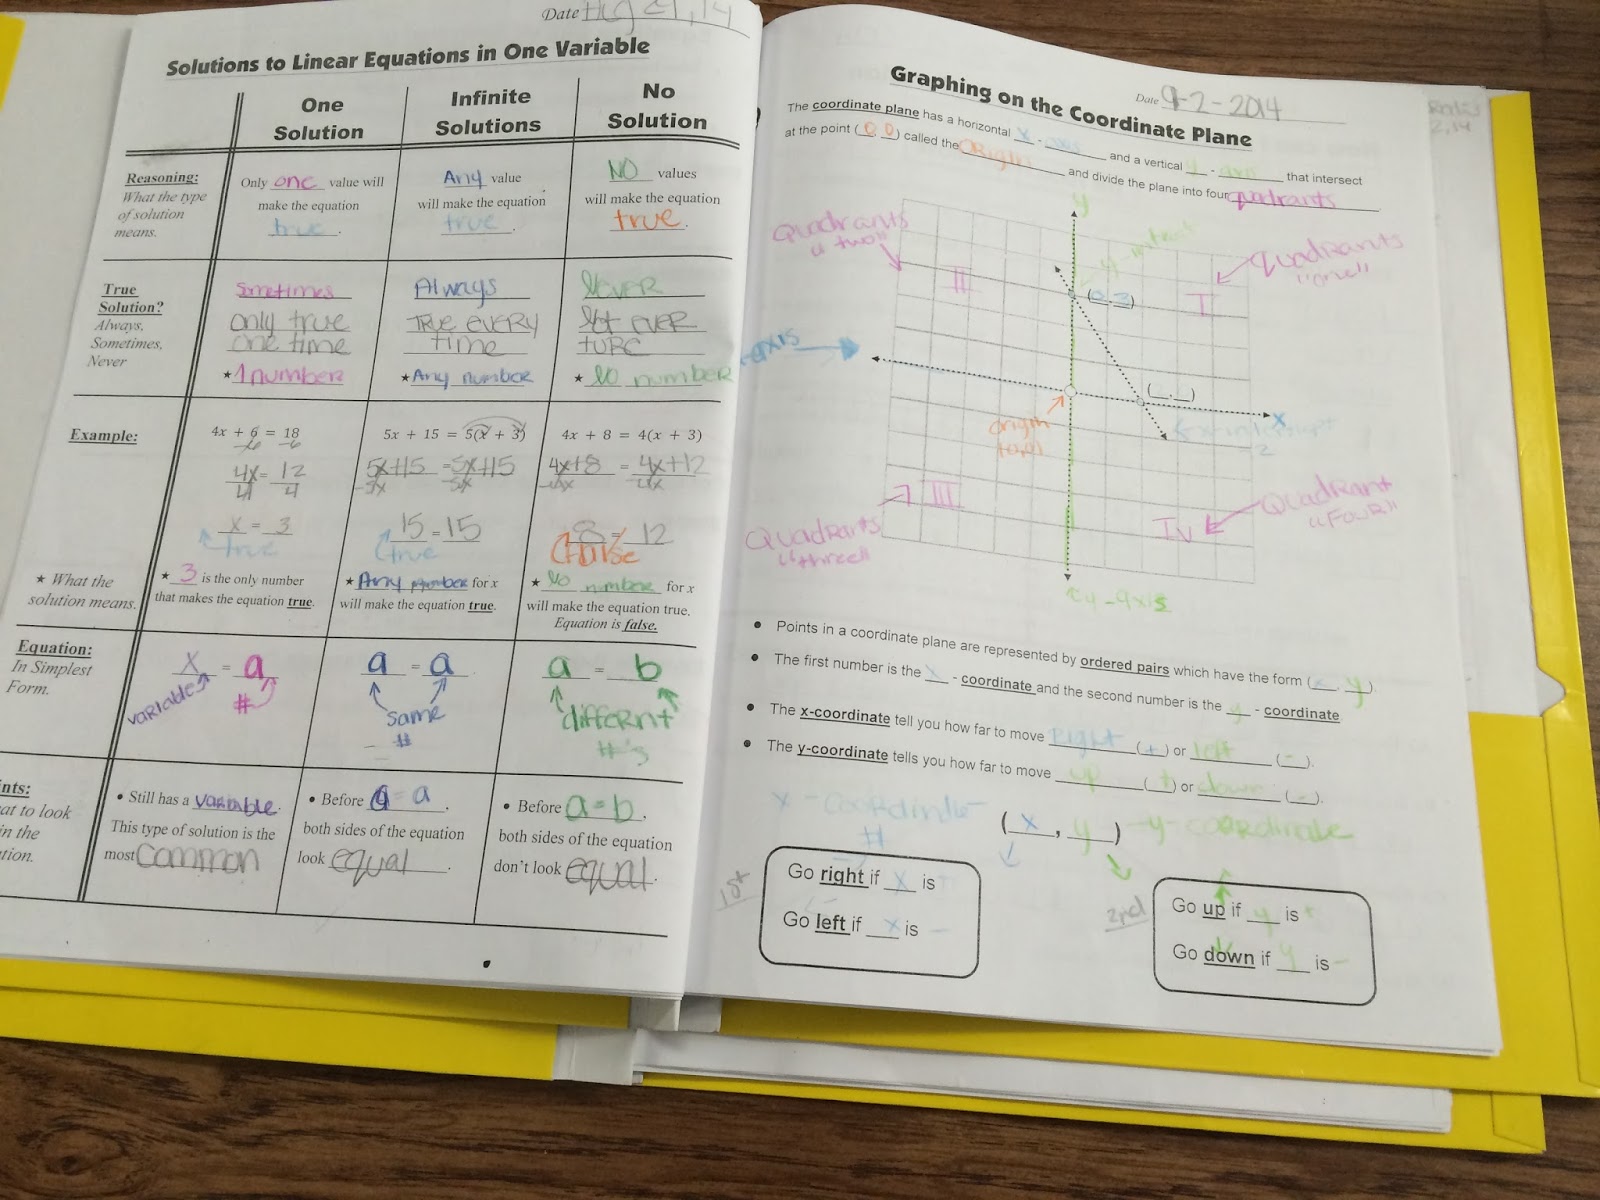 Date
Solutions to Linear Equations in One Variable
One Solution
Infinite Solutions
No Solution
Reasoning:
What the type
of solution
means.
Only one value will
make the equation
true.
Any value
will make the equation
true.
NO values
will make the equation
true.
True
Solution?
Always,
Sometimes,
Never
Sometimes
only true
one time
★ 1 number
Always
TRUE EVERY
time
★ Any number
NEVER
Not EVER
TURE
★ No number
Example:
4x + 6 = 18
-6 -6
4x = 12
4 4
x = 3
true
5x + 15 = 5(x + 3)
5x+15 = 5x+15
-5x -5x
15 = 15
true
4x + 8 = 4(x + 3)
4x+8 = 4x+12
-4x -4x
8 = 12
★ What the
solution means.
★ 3 is the only number
that makes the equation true.
★ Any number for x
will make the equation true.
★ No number for x
will make the equation true.
Equation is false.
Equation:
In Simplest
Form.
x = a
variable #
a = a
same
#
a = b
differnt
#'s
nts:
at to look
in the
tion.
• Still has a variable.
This type of solution is the
most common
• Before a = a,
both sides of the equation
look equal.
• Before a = b,
both sides of the equation
don't look equal.
Date 9-2-2014
Graphing on the Coordinate Plane
The coordinate plane has a horizontal x - axis and a vertical y - axis that intersect
at the point (0, 0) called the origin and divide the plane into four quadrants
y
Quadrants
"two"
II
(0, 3)
I
Quadrants
"one"
axis
x
(__, __)
origin
Quadrants
"three"
III
IV
Quadrant
"FOUR"
y-axis
• Points in a coordinate plane are represented by ordered pairs which have the form (x, y).
• The first number is the x - coordinate and the second number is the y - coordinate.
• The x-coordinate tell you how far to move right (+) or left (-).
• The y-coordinate tells you how far to move up (+) or down (-).
x - coordinate
#
(x, y) - y-coordinate
1st
Go right if x is
Go left if x is -
2nd
Go up if y is +
Go down if y is -